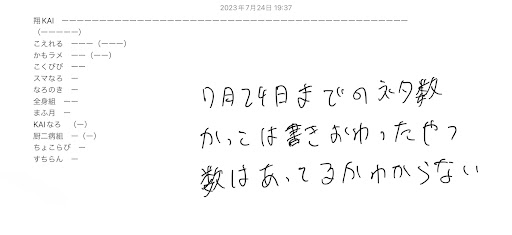 2023年7月24日 19:37
翔KAI ーーーーーーーーーーーーーーーーーーーーーーーーーーーーーーーーーーーーーー
(ーーーーー)
こえれる ーーー (ーーー)
かもラメ ーー (ーー)
こくびび ーー
スマなろ ー
なろのき ー
全身組 ーー
まふ月 ー
KAIなろ (ー)
厨二病組 ー (ー)
ちょこらび ー
すちらん ー
7月24日までのネタ数
かっこは書きおわったやつ
数はあってるかわからない